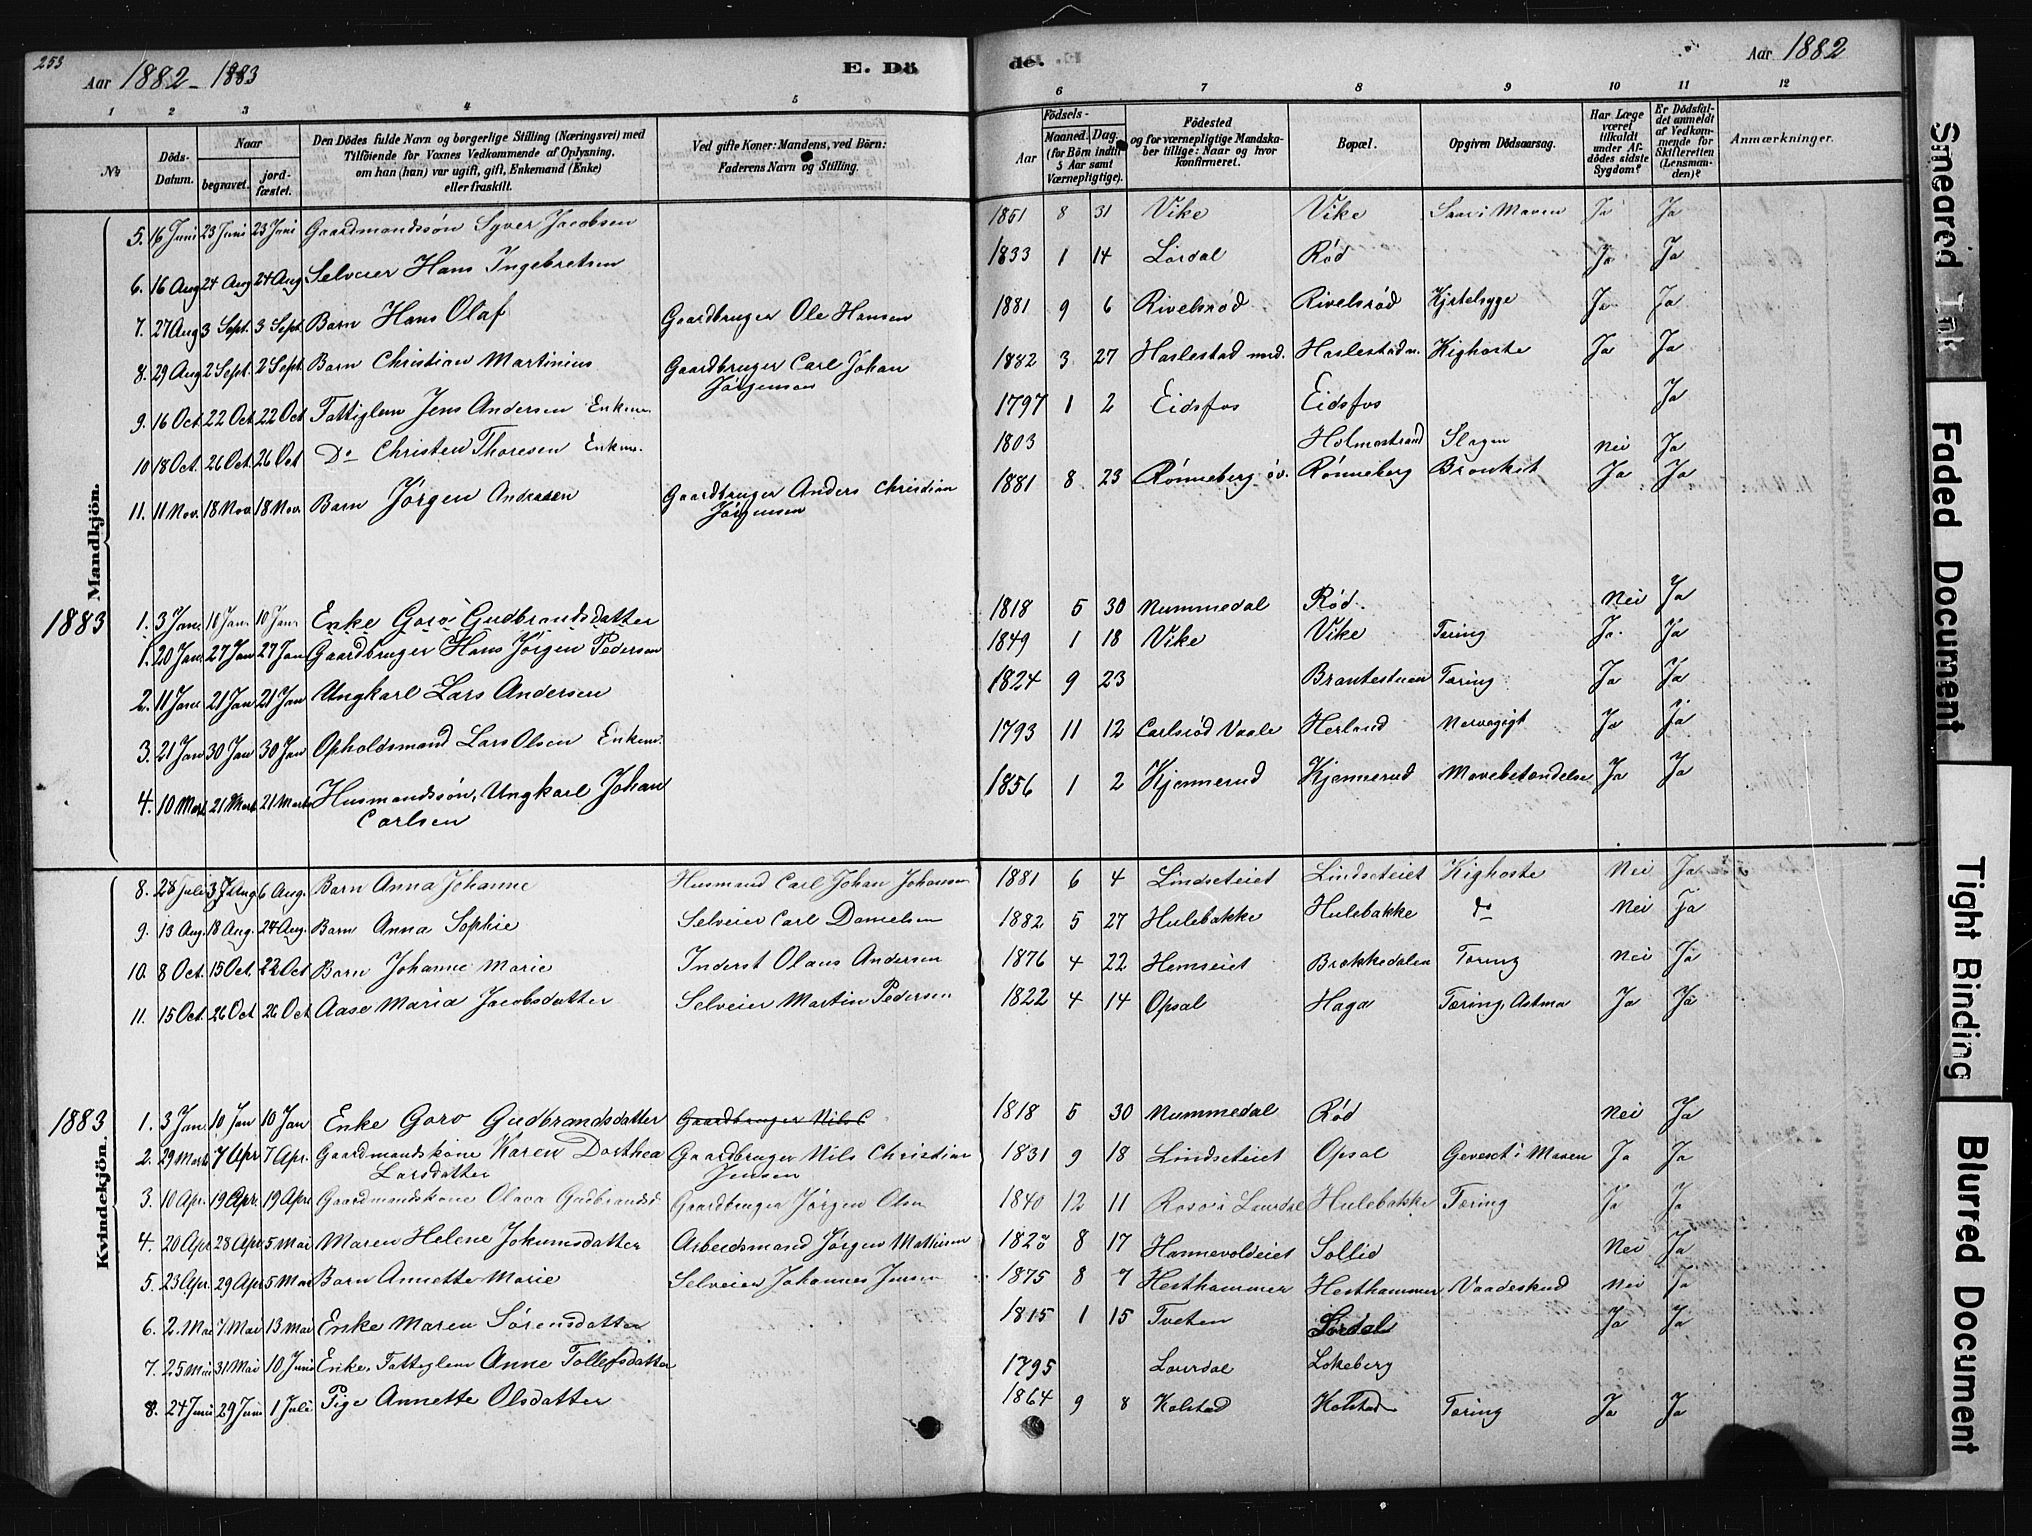 253
Aar 1882-1883
E. Dö
de.
Aar 1882
1 2 3 4 5 6 7 8 9 10 11 12
No
Döds-Datum.
Naar
begravet.
jord-fæstet.
Den Dödes fulde Navn og borgerlige Stilling (Næringsvei) med
Tilföiende for Voxnes Vedkommende af Oplysning.
om han (hun) var ugift, gift, Enkemand (Enke)
eller fraskilt.
Ved gifte Koner: Mandens, ved Börn:
Faderens Navn og Stilling.
Födsels-
Aar
Maaned.
Dag.
(for Börn indtil
5 Aar samt
Værnepligtige).
Födested
og for værnepligtige Mandska-
ber tillige: Naar og hvor
konfirmeret.
Bopæl.
Opgiven Dödsaarsag.
Har Læge
været
tilkaldt
under Af-
dödes sidste
Sygdom?
Er Dödsfal-
det anmeldt
af Vedkom-
mende for
Skifteretten
(Lensman-
den)?
Anmærkninger.
Mandkjön.
5. 16 Juni 23 Juni 23 Juni Gaardmandssøn Syver Jacobsen 1851 8 31 Vike Vike Saar i Maven Ja Ja
6. 16 Aug 24 Aug 24 Aug Selveier Hans Ingebretsen 1833 1 14 Lørdal Rød Ja Ja
7. 27 Aug 3 Sept. 3 Sept. Barn Hans Olaf Gaardbruger Ole Hansen 1881 9 6 Rivelsrød Rivelsrød Kjertelsyge Ja Ja
8. 29 Aug 2 Sept. 2 Sept. Barn Christian Martinius Gaardbruger Carl Johan
Jørgensen 1882 3 27 Haslestad ned. Haslestad n. Kighoste Ja Ja
9. 16 Oct. 22 Oct. 22 Oct Fattiglem Jens Andersen Enkem. 1797 1 2 Eidsfos Eidsfos Ja
10 18 Oct. 26 Oct. 26 Oct Do Christen Thoresen Enkem. 1803 Holmestrand Slagen Nei Ja
11. 11 Nov. 18 Nov. 18 Nov. Barn Jørgen Andersen Gaardbruger Anders Christian
Jørgensen 1881 8 23 Rønneberg øv. Rønneberg Bronkit Ja Ja
1883
1. 3 Jan. 10 Jan. 10 Jan. Enke Goro Gudbrandsdatter 1818 5 30 Nummedal Rød. Nei Ja
1. 20 Jan. 27 Jan 27 Jan Gaardbruger Hans Jørgen Pedersen 1849 1 18 Vike Vike Tæring Ja. Ja
2. 11 Jan. 21 Jan 21 Jan Ungkarl Lars Andersen 1824 9 23 Brantestuen Tæring Ja Ja
3. 21 Jan 30 Jan 30 Jan Opholdsmand Lars Olsen Enkem. 1793 11 12 Carlsrød Vaale Herland Nervegigt Ja Ja
4. 10 Marts 21 Marts 21 Marts Husmandssøn, Ungkarl Johan
Carlsen 1856 1 2 Kjennerud Kjennerud Mavebetændelse Ja Ja
Kvindekjön.
8. 28 Juli 6 Aug. Barn Anna Johanne Husmand Carl Johan Johansen 1881 6 4 Lindseteiet Lindseteiet Kighoste Nei Ja
9. 13 Aug. 18 Aug. 24 Aug. Barn Anna Sophie Selveier Carl Danielsen 1882 5 27 Hulebakke Hulebakke do Nei Ja
10. 8 Oct. 15 Oct. 22 Oct Barn Johanne Marie Inderst Olaus Andersen 1876 4 22 Hemseiet Brekkedalen Tæring Nei Ja
11. 15 Oct. 26 Oct 26 Oct Aase Maria Jacobsdatter Selveier Martin Pedersen 1822 4 14 Opsal Haga Tæring, Astma Ja Ja
1883
1. 3 Jan. 10 Jan 10 Jan Enke Goro Gudbrandsdatter Gaardbruger Nils C 1818 5 30 Nummedal Rød Nei Ja
2. 29 Marts 7 Apr 7 Apr. Gaardmandskone Karen Dorthea
Larsdatter Gaardbruger Nils Christian
Jensen 1831 9 18 Lindseteiet Opsal Gevext i Maven Ja Ja
3. 10 Apr. 19 Apr. 19 Apr Gaardmandskone Olava Gudbrandsd. Gaardbruger Jørgen Olsen 1840 12 11 Laurdal Hulebakke Tæring Ja Ja
4. 20 Apr 28 Apr 5 Mai Maren Helene Jokumsdatter Arbeidsmand Jørgen Mathisen 1820 8 17 Hannevoldeiet Sollid Nei Ja
5. 23 Apr. 29 Apr 5 Mai Barn Annette Marie Selveier Johannes Jensen 1875 8 7 Hesthammer Hesthammer Vaadeskud Nei Ja
6. 2. Mai 7 Mai 13 Mai Enke Maren Sørensdatter 1815 1 15 Tveten Lørdal Ja Ja
7. 25 Mai 31 Mai 10 Juni Enke, Fattiglem Anne Tollefsdatter 1795 Laurdal Lokeberg
8. 24 Juni 29 Juni 1 Juli Pige Annette Olsdatter 1864 9 8 Kolstad Kolstad Tæring Ja Ja
Smeared Ink
Faded Document
Tight Binding
Blurred Document